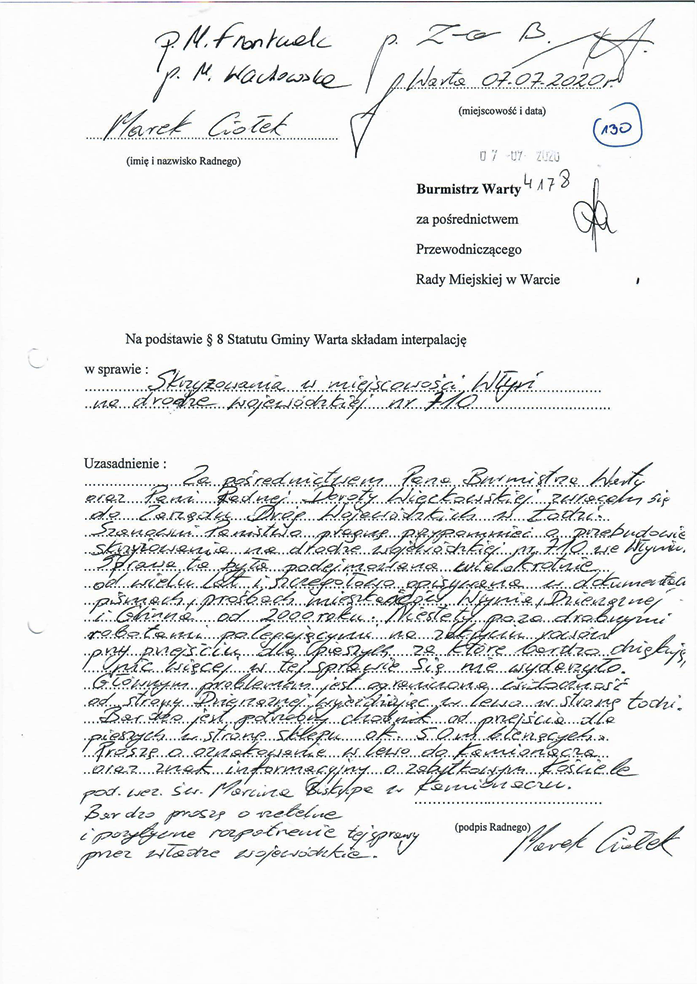 p. M. Frontczak
p. Z-ca B.
p. M. Wachowska
Warta 07.07.2020r.
(miejscowość i data)
Marek Ciołek
(imię i nazwisko Radnego)
130
07 -07- 2020
Burmistrz Warty 4178
za pośrednictwem
Przewodniczącego
Rady Miejskiej w Warcie
Na podstawie § 8 Statutu Gminy Warta składam interpalację
w sprawie :
Skrzyżowania w miejscowości Włyń
na drodze wojewódzkiej nr 710
Uzasadnienie :
Za pośrednictwem Pana Burmistrza Warty
oraz Pani Radnej Doroty Więckowskiej zwracam się
do Zarządu Dróg Wojewódzkich w Łodzi.
Szanowni Państwo pragnę przypomnieć o przebudowie
skrzyżowania na drodze wojewódzkiej nr 710 we Włyniu.
Sprawa ta była podejmowana wielokrotnie
od wielu lat i szczegółowo opisywana w dokumentach
pismach, prośbach mieszkańców Włynia, Dzierząznej
i Glinna od 2000 roku. Niestety poza drobnymi
robotami polegającymi na zakryciu rowów
przy przejściu dla pieszych za które bardzo dziękuję,
nic więcej w tej sprawie się nie wydarzyło.
Głównym problemem jest ograniczona widoczność
od strony Dzierzaznej wyjeżdżając w lewo w stronę Łodzi.
Bardzo jest potrzebny chodnik od przejścia dla
pieszych w stronę sklepu ok. 50 m bieżących.
Proszę o oznakowanie w lewo do Kamionacza
oraz znak informacyjny o zabytkowym Kościele
pod. wez. św. Marcina Biskupa w Kamionaczu.
Bardzo proszę o rzetelne
i pozytywne rozpatrzenie tej sprawy
przez władze wojewódzkie.
(podpis Radnego)
Marek Ciołek